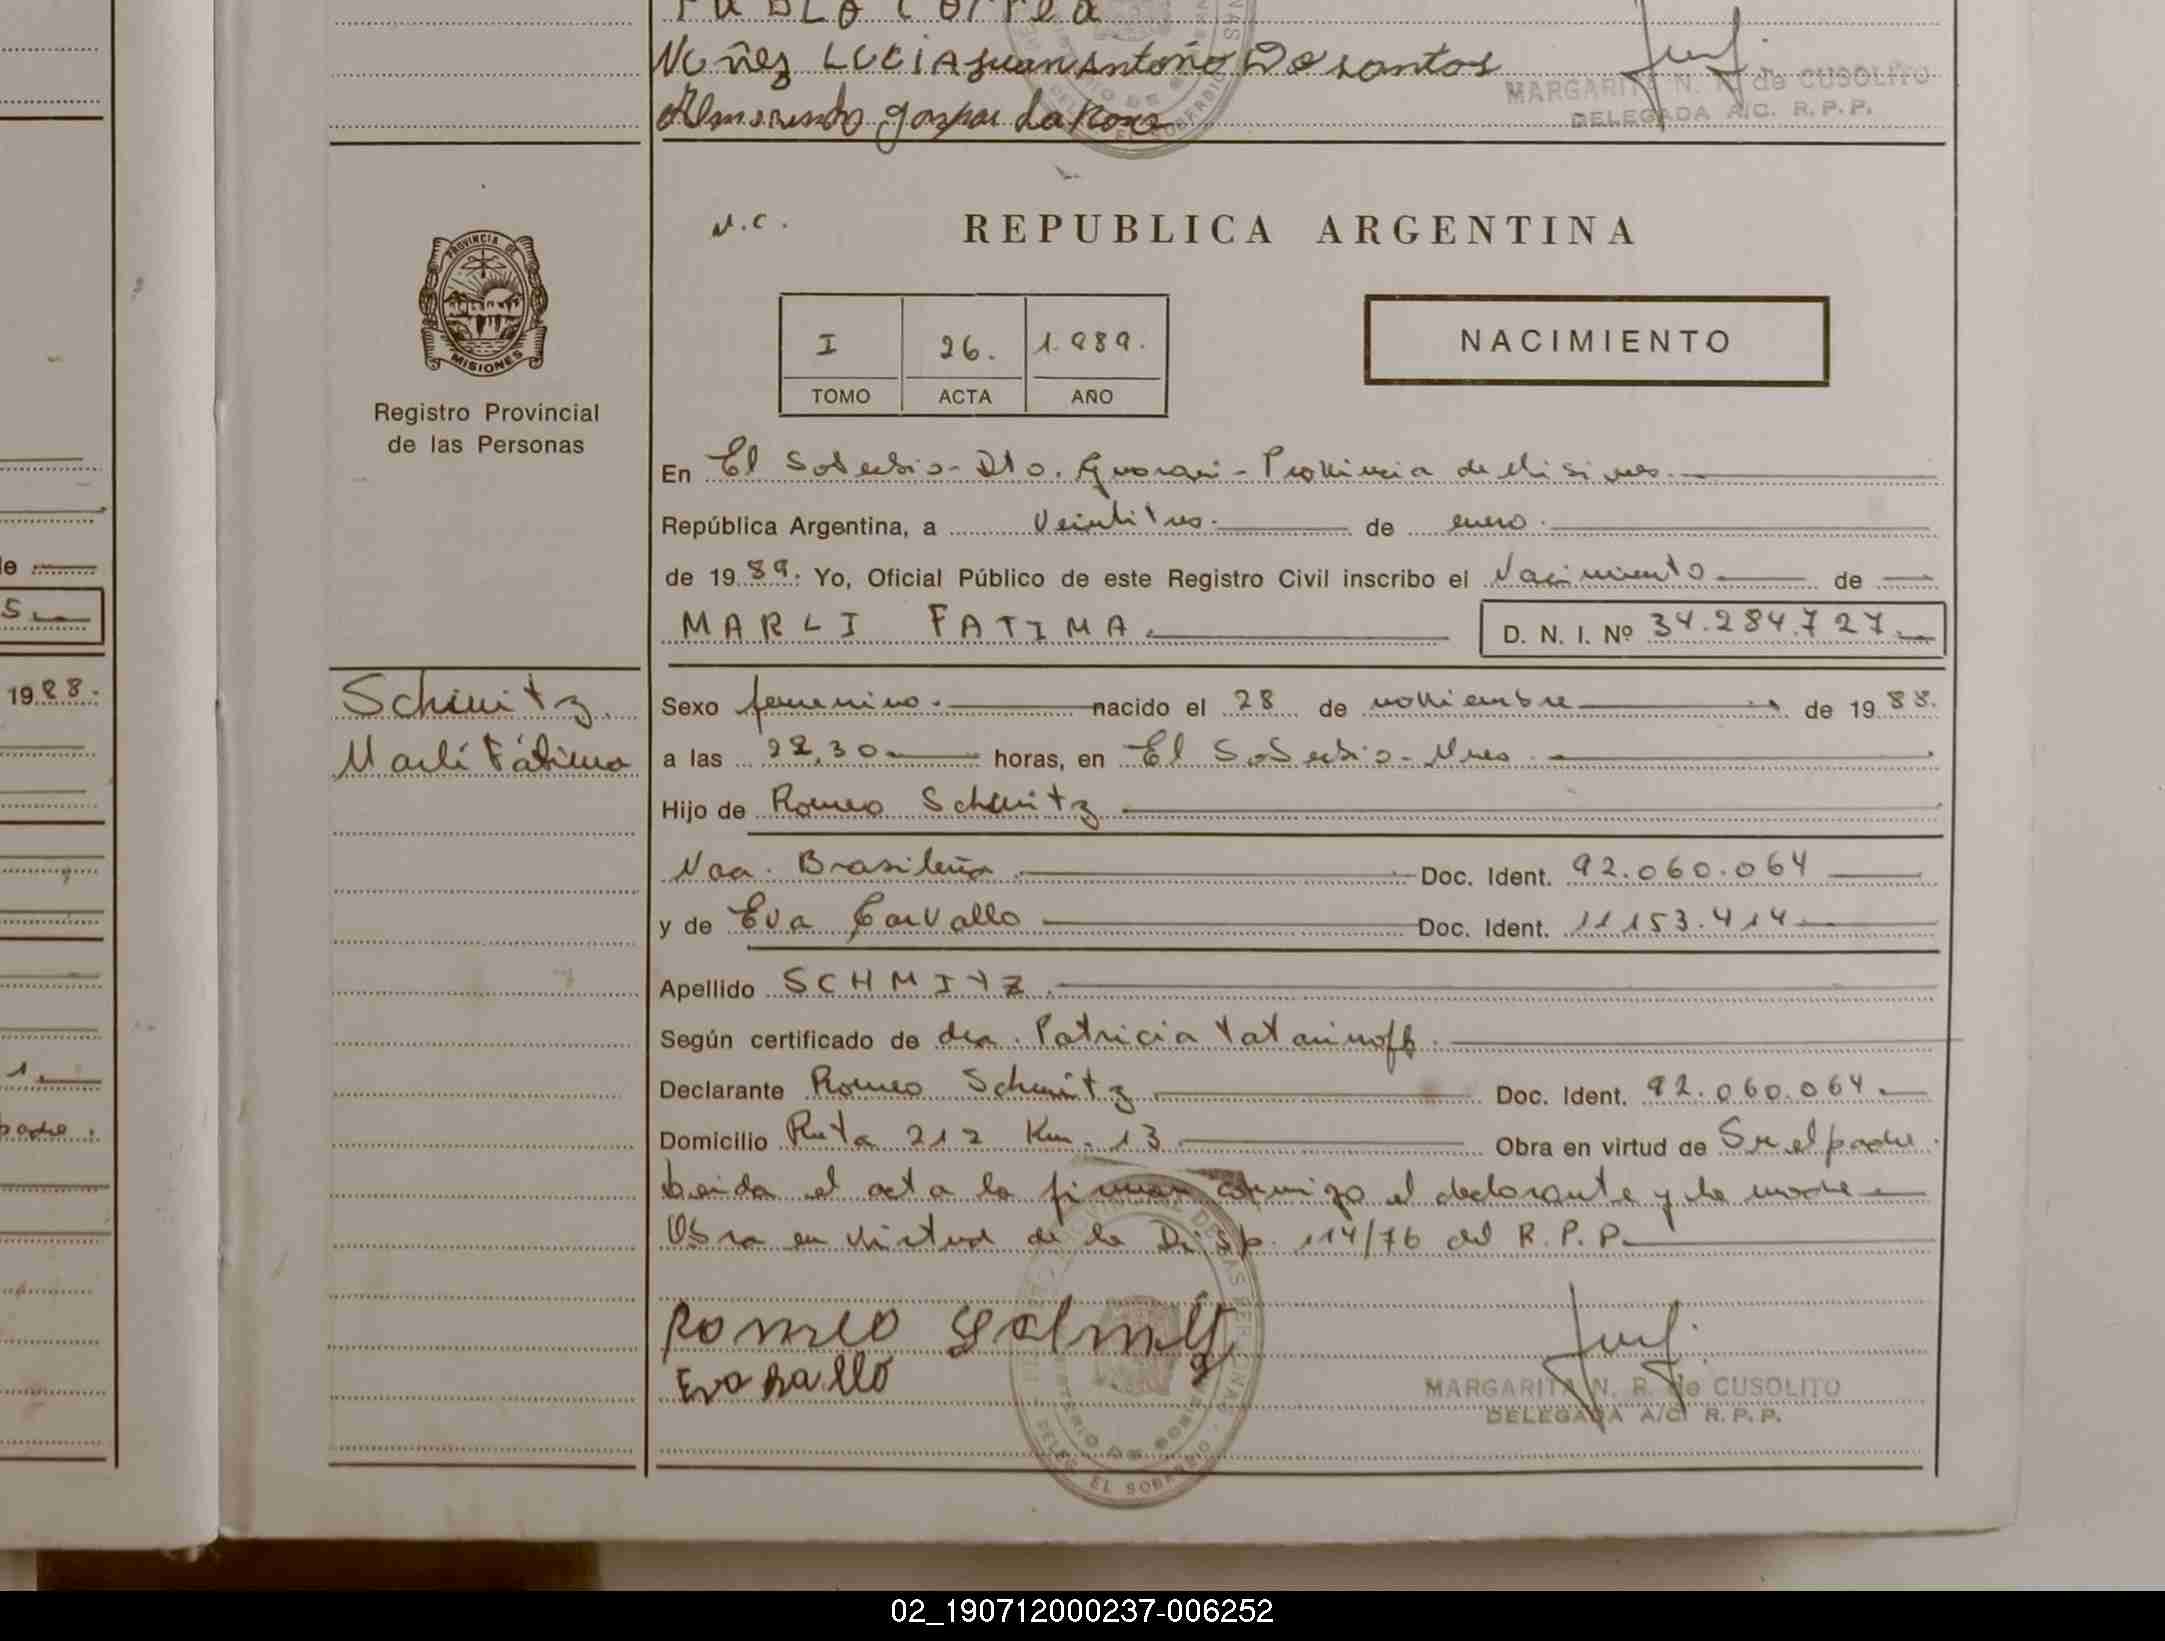 Pablo Correa
Nuñez LUCIA Juan Antoño Do santos
gaspar La Rosa
MARGARITA N. R. de CUSOLITO
DELEGADA A/C. R. P. P.
N.C.
REPUBLICA ARGENTINA
PROVINCIA DE
MISIONES
Registro Provincial
de las Personas
I 26. 1.989.
TOMO ACTA AÑO
NACIMIENTO
En El Soberbio - Dto. Guarani - Provincia de Misiones
República Argentina, a Veintitres. de enero.
de 1989. Yo, Oficial Público de este Registro Civil inscribo el Nacimiento de
MARLI FATIMA. D. N. I. Nº 34.284.727
Schmitz
Marlí Fátima
Sexo femenino. nacido el 28 de noviembre de 1988.
a las 22,30 horas, en El Soberbio - Mnes.
Hijo de Romeo Schmitz
Nac. Brasileña. Doc. Ident. 92.060.064
y de Eva Carvallo Doc. Ident. 11.153.414
Apellido SCHMITZ.
Según certificado de dra. Patricia Tatarinoff.
Declarante Romeo Schmitz Doc. Ident. 92.060.064
Domicilio Ruta 212 Km. 13 Obra en virtud de Ser el padre.
Leida el acta la firman conmigo el declarante y la madre
Obra en virtud de la Disp. 114/76 del R.P.P.
Romeo Schmitz
Eva ballo
MARGARITA N. R. de CUSOLITO
DELEGADA A/C. R. P. P.
DELEG. EL SOBERBIO
de
5
1988.
1.
padre.
02_190712000237-006252